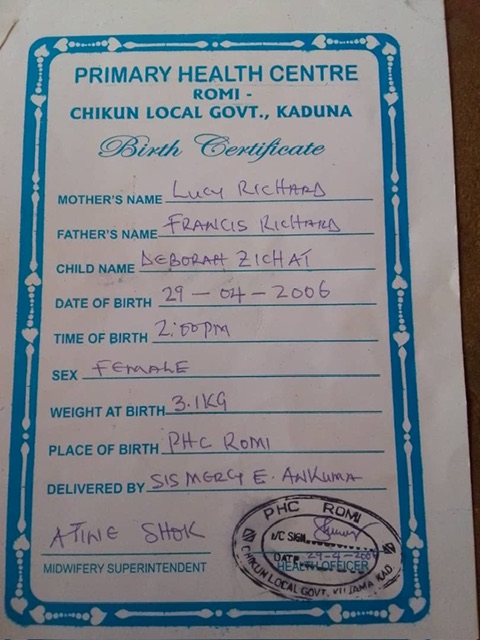 PRIMARY HEALTH CENTRE
ROMI -
CHIKUN LOCAL GOVT., KADUNA
Birth Certificate
MOTHER'S NAME LUCY RICHARD
FATHER'S NAME FRANCIS RICHARD
CHILD NAME DEBORAH ZICHAT
DATE OF BIRTH 29 - 04 - 2006
TIME OF BIRTH 2:00PM
SEX FEMALE
WEIGHT AT BIRTH 3.1KG
PLACE OF BIRTH PHC ROMI
DELIVERED BY SIS MERCY E. ANKUMA
ATINE SHOK
MIDWIFERY SUPERINTENDENT
PHC ROMI
I/C SIGN
DATE 29-4-2006
HEALTH OFFICER
CHIKUN LOCAL GOVT. KAD